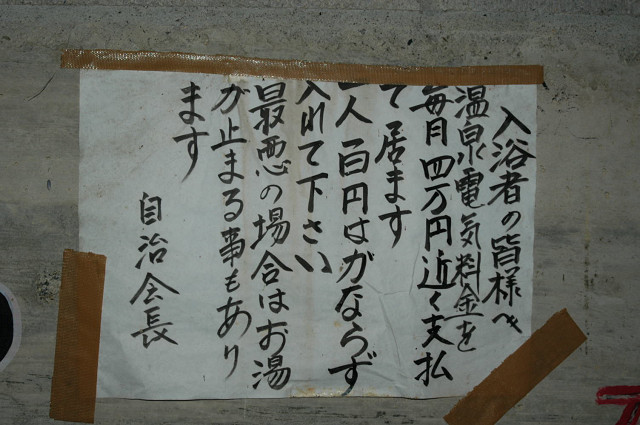 入浴者の皆様へ
温泉電気料金を
毎月四万円近く支払
て居ます
一人百円はがならず
入れて下さい
最悪の場合はお湯
が止まる事もあり
ます
自治会長